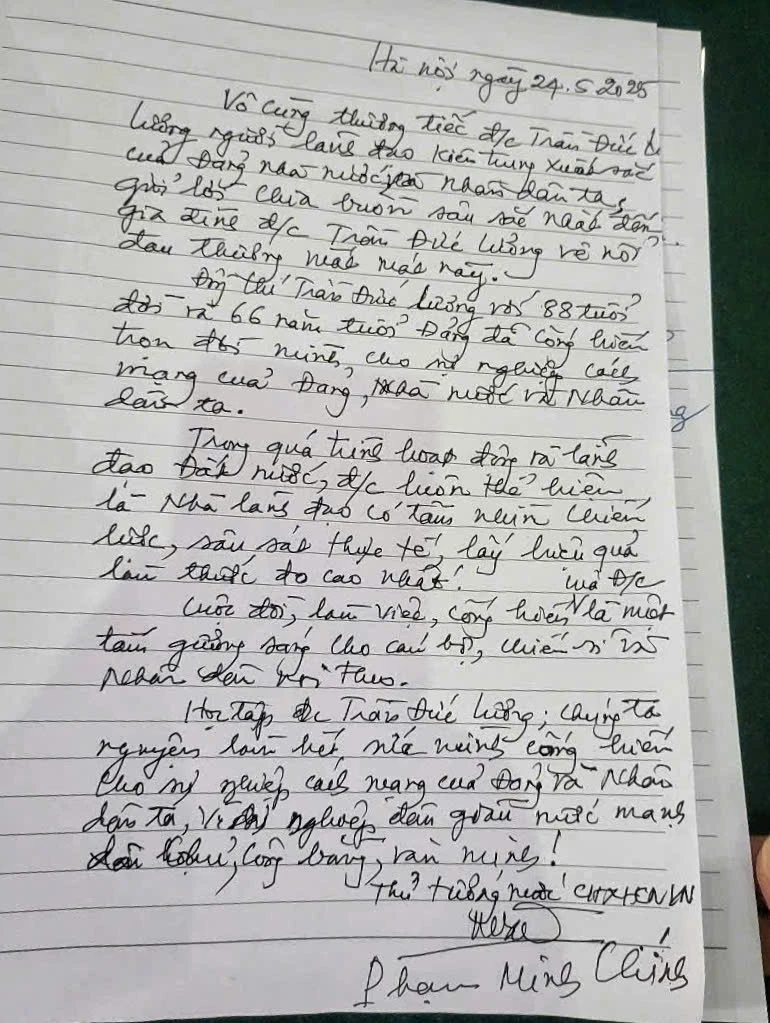 Hà nội ngày 24.5 2025
Vô cùng thương tiếc đ/c Trần Đức
Lương người lãnh đạo kiên trung xuất sắc
của Đảng nhà nước và nhân dân ta,
gửi lời chia buồn sâu sắc nhất đến
gia đình đ/c Trần Đức Lương về nỗi
đau thương mất mát này.
Đồng chí Trần Đức Lương với 88 tuổi
đời và 66 năm tuổi Đảng đã cống hiến
trọn đời mình, cho sự nghiệp cách
mạng của Đảng, nhà nước và Nhân
dân ta.
Trong quá trình hoạt động và lãnh
đạo Đất nước, đ/c luôn thể hiện
là Nhà lãnh đạo có tầm nhìn chiến
lược, sâu sát thực tế, lấy hiệu quả
làm thước đo cao nhất!
của Đ/c
Cuộc đời, làm việc, cống hiến là một
tấm gương sáng cho cán bộ, chiến sĩ và
Nhân dân noi theo.
Học tập đ/c Trần Đức Lương, chúng ta
nguyện làm hết sức mình cống hiến
cho sự nghiệp cách mạng của Đảng và Nhân
dân ta, vì sự nghiệp dân giàu nước mạnh
dân chủ, công bằng, văn minh!
Thủ tướng nước CHXHCNVN
Phạm Minh Chính